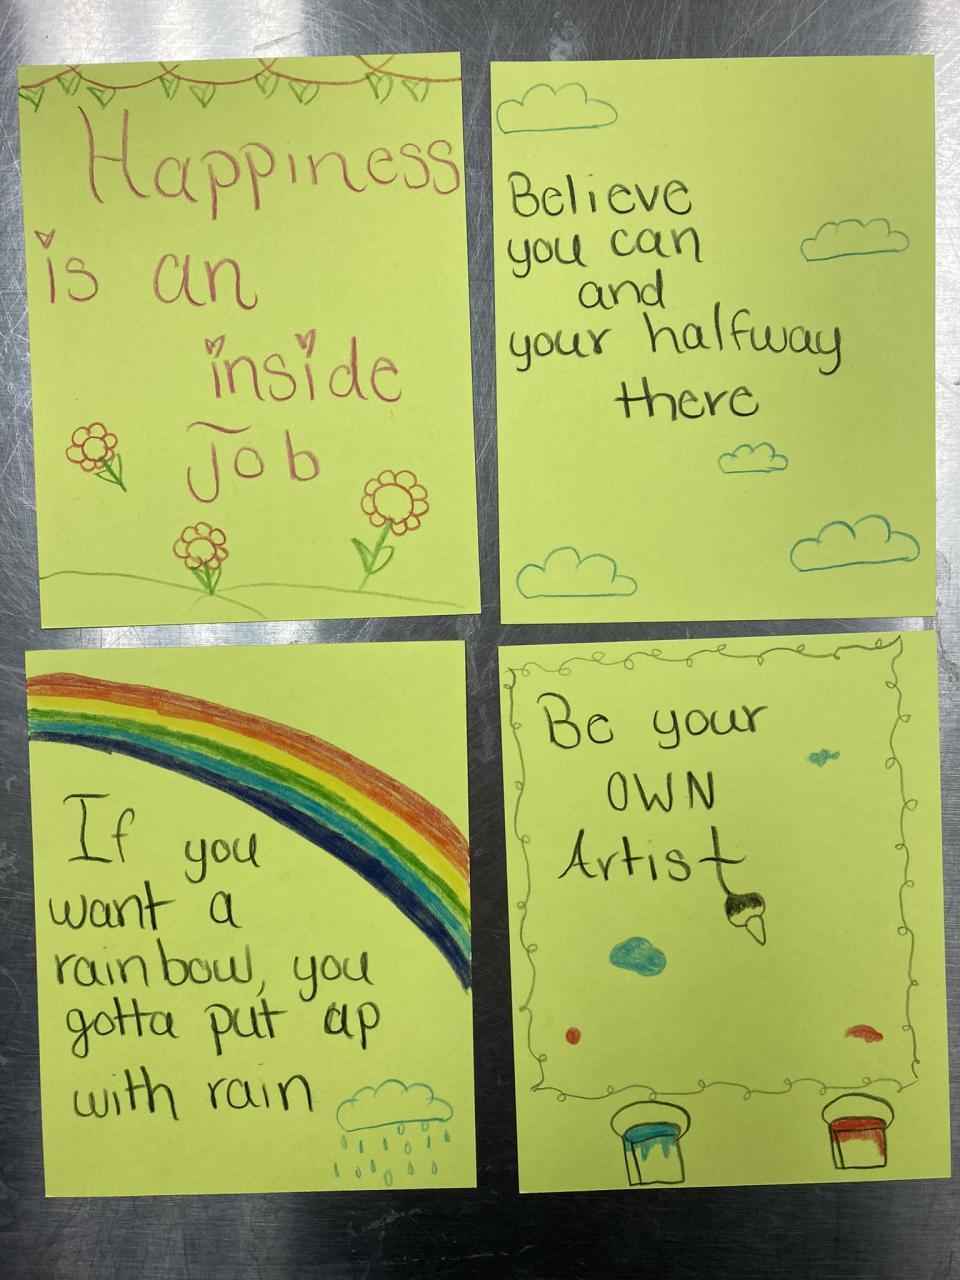 Happiness
is an
inside
Job
Believe
you can
and
your halfway
there
If you
want a
rainbow, you
gotta put up
with rain
Be your
OWN
Artist